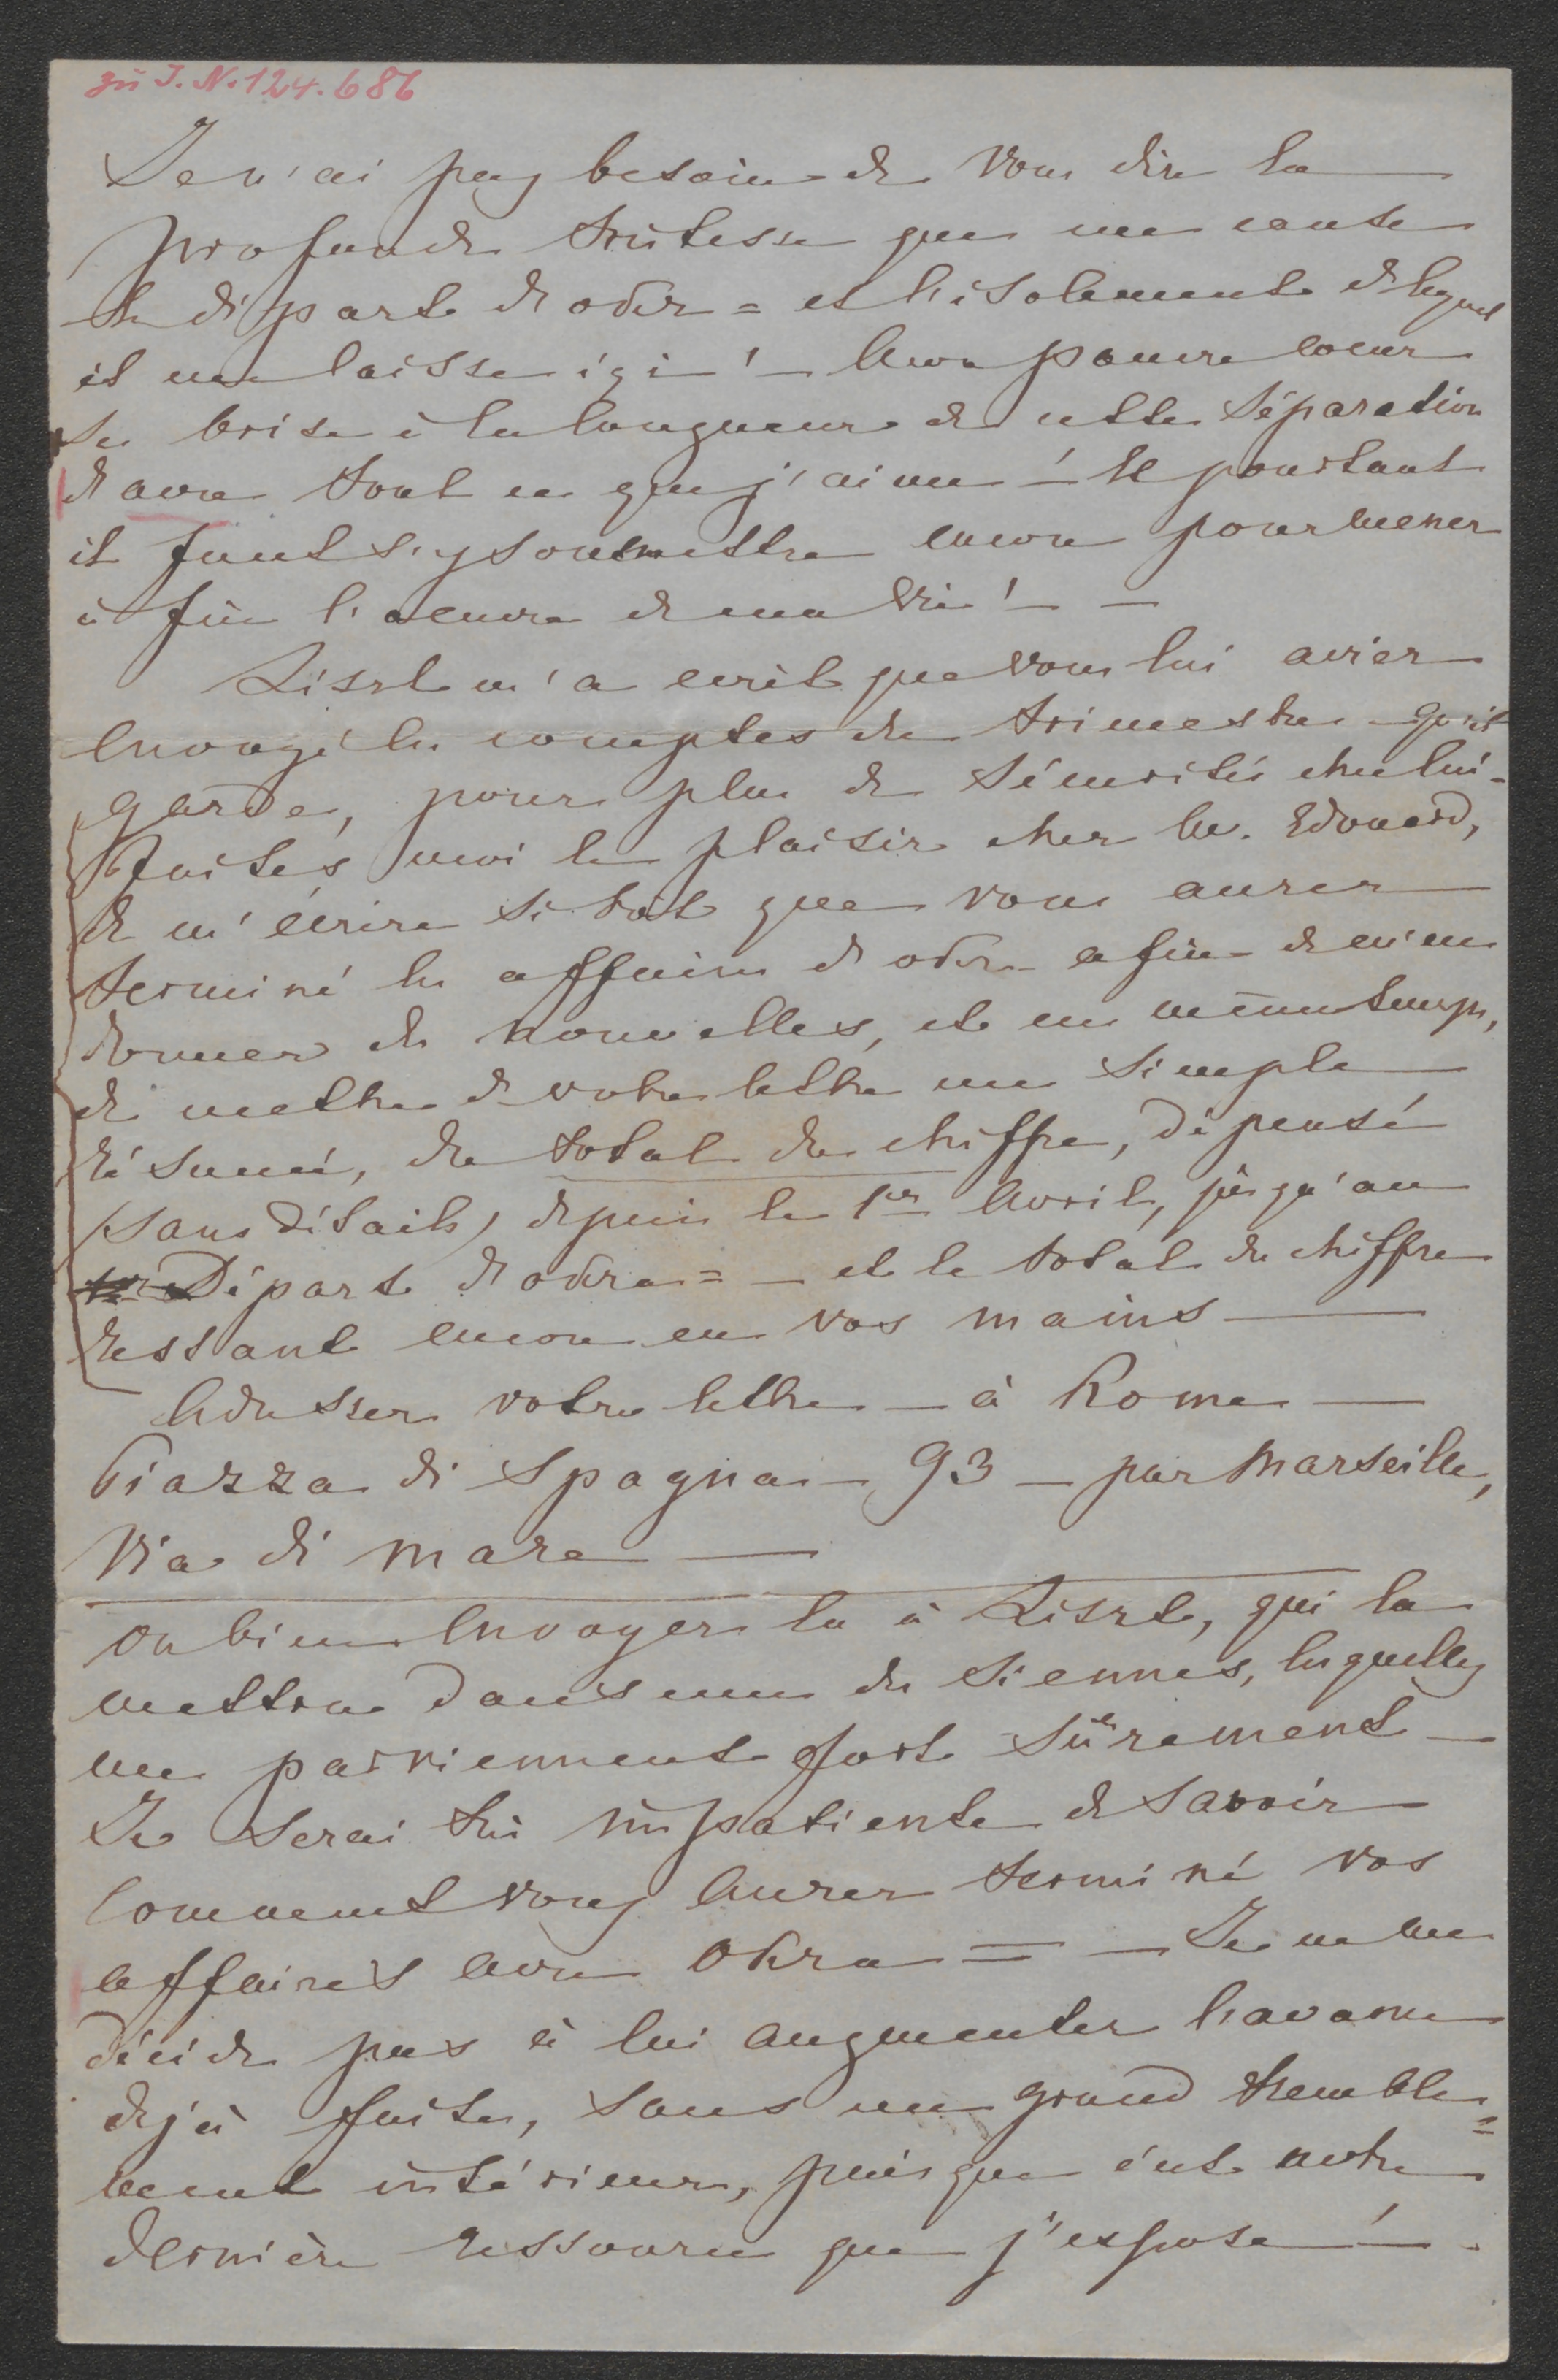 zu I. N. 124.686
Je n'ai pas besoin de vous dire la
profonde tristesse que me cause
le départ d'Okra = et l'isolement de lequel
il me laisse içi ! — Mon pauvre coeur
se brise à la longueur de cette séparation
d'avec tout ce que j'aime ! — Et pourtant
il faut s'y soumettre encore pour mener
à fin l'oeuvre de ma vie ! — —
Liszt m'a ecrit que vous lui aviez
envoyé les comptes du trimestre — qu'il
garde, pour plus de sécurité chez lui —
Faites moi le plaisir cher M. Edouard,
de m'écrire si tôt que vous aurez
terminé les affaires d'Okra — afin de m'en
donner des nouvelles, et en même temps,
de mettre d votre lettre un simple
résumé, du total du chiffre, dépensé
(sans détails) depuis le 1er Avril, jusqu'au
Départ d'Okra = — et le total du chiffre
restant encore en vos mains —
Adresser votre lettre — à Rome —
Piazza di Spagna — 93 — par Marseille,
Via di mare —
ou bien envoyer la à Liszt, qui la
mettra dans une des siennes, lesquelles
me parviennent fort sûrement —
Je serai très impatiente de savoir
comment vous aurez terminé vos
affaires avec Okra = — Je ne me
décide pas à lui augmenter l'avance
déjà faite, sans un grand tremble=
ment intérieur, puisque c'est notre
dernière ressource que j'expose ! — .